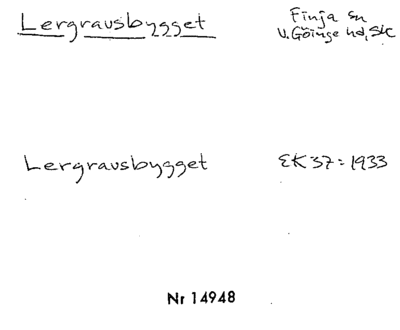 Lergravsbygget
Finja sn
V. Göinge hd, Sk
Lergravsbygget
EK 37 = 1933
Nr 14948